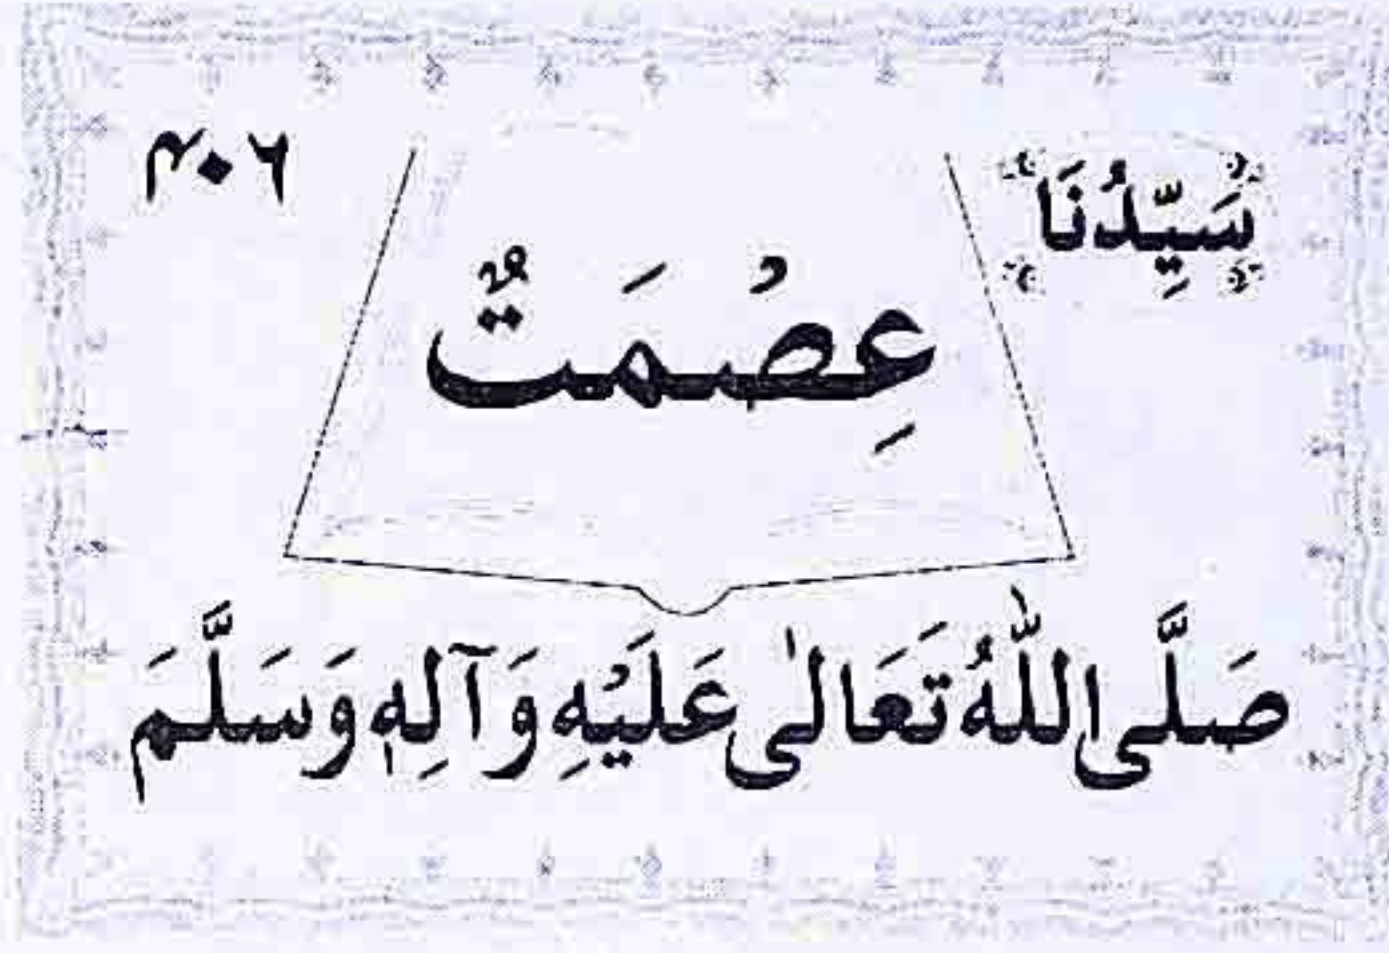 سَيِّدُنَا ۴۰۶
عِصْمَتٌ
صَلَّى اللّٰهُ تَعَالٰى عَلَيْهِ وَآلِهٖ وَسَلَّمَ